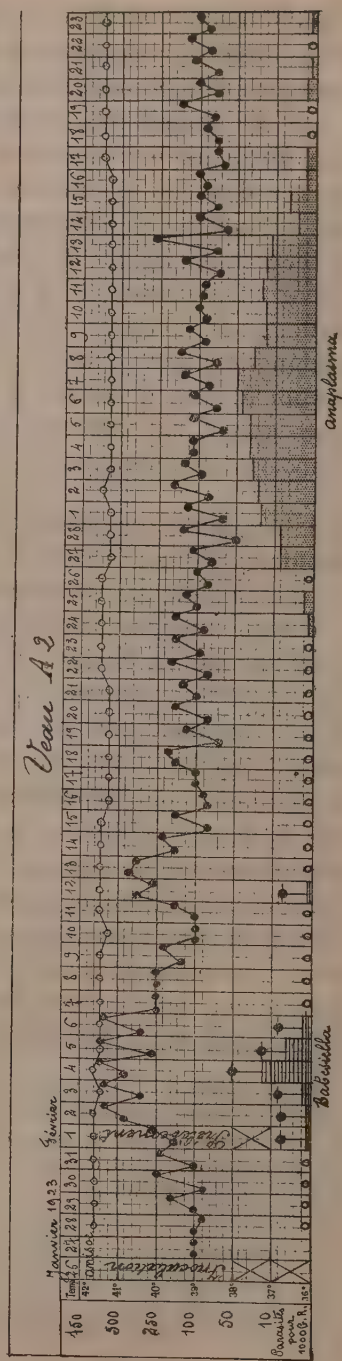 Veau A 2
Janvier 1923 Février
26 27 28 29 30 31 1 2 3 4 5 6 7 8 9 10 11 12 13 14 15 16 17 18 19 20 21 22 23 24 25 26 27 28 1 2 3 4 5 6 7 8 9 10 11 12 13 14 15 16 17 18 19 20 21 22 23
42°
500 41°
250 40°
100 39°
50 38°
10 37°
36°
Parasites
pour
1000 G. R.
Inoculation
Babesiella
anaplasma